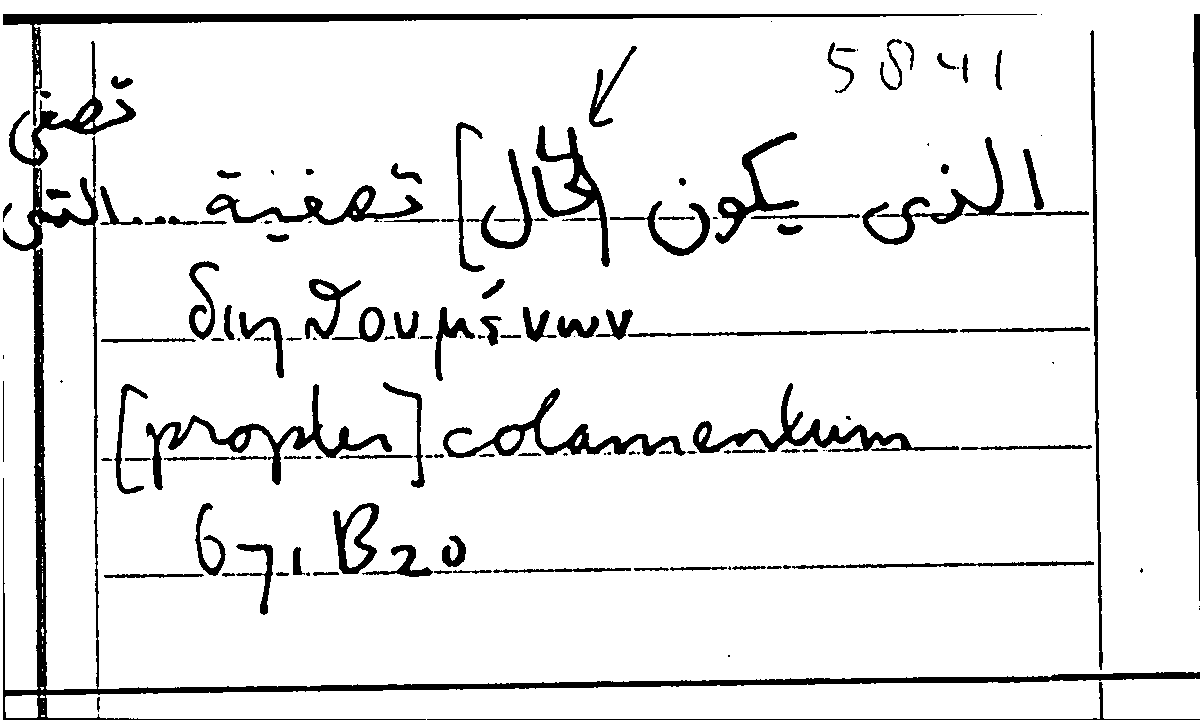 5841
الذى يكون [لحال] تصفية ... التى
تصفى
διηθουμένων
[propter] colamentum
671 B 20